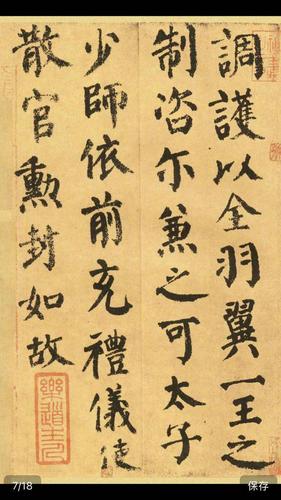 調護以全羽翼一王之
制咨尔兼之可太子
少師依前充禮儀使
散官勳封如故
樂道主人
7/18
保存